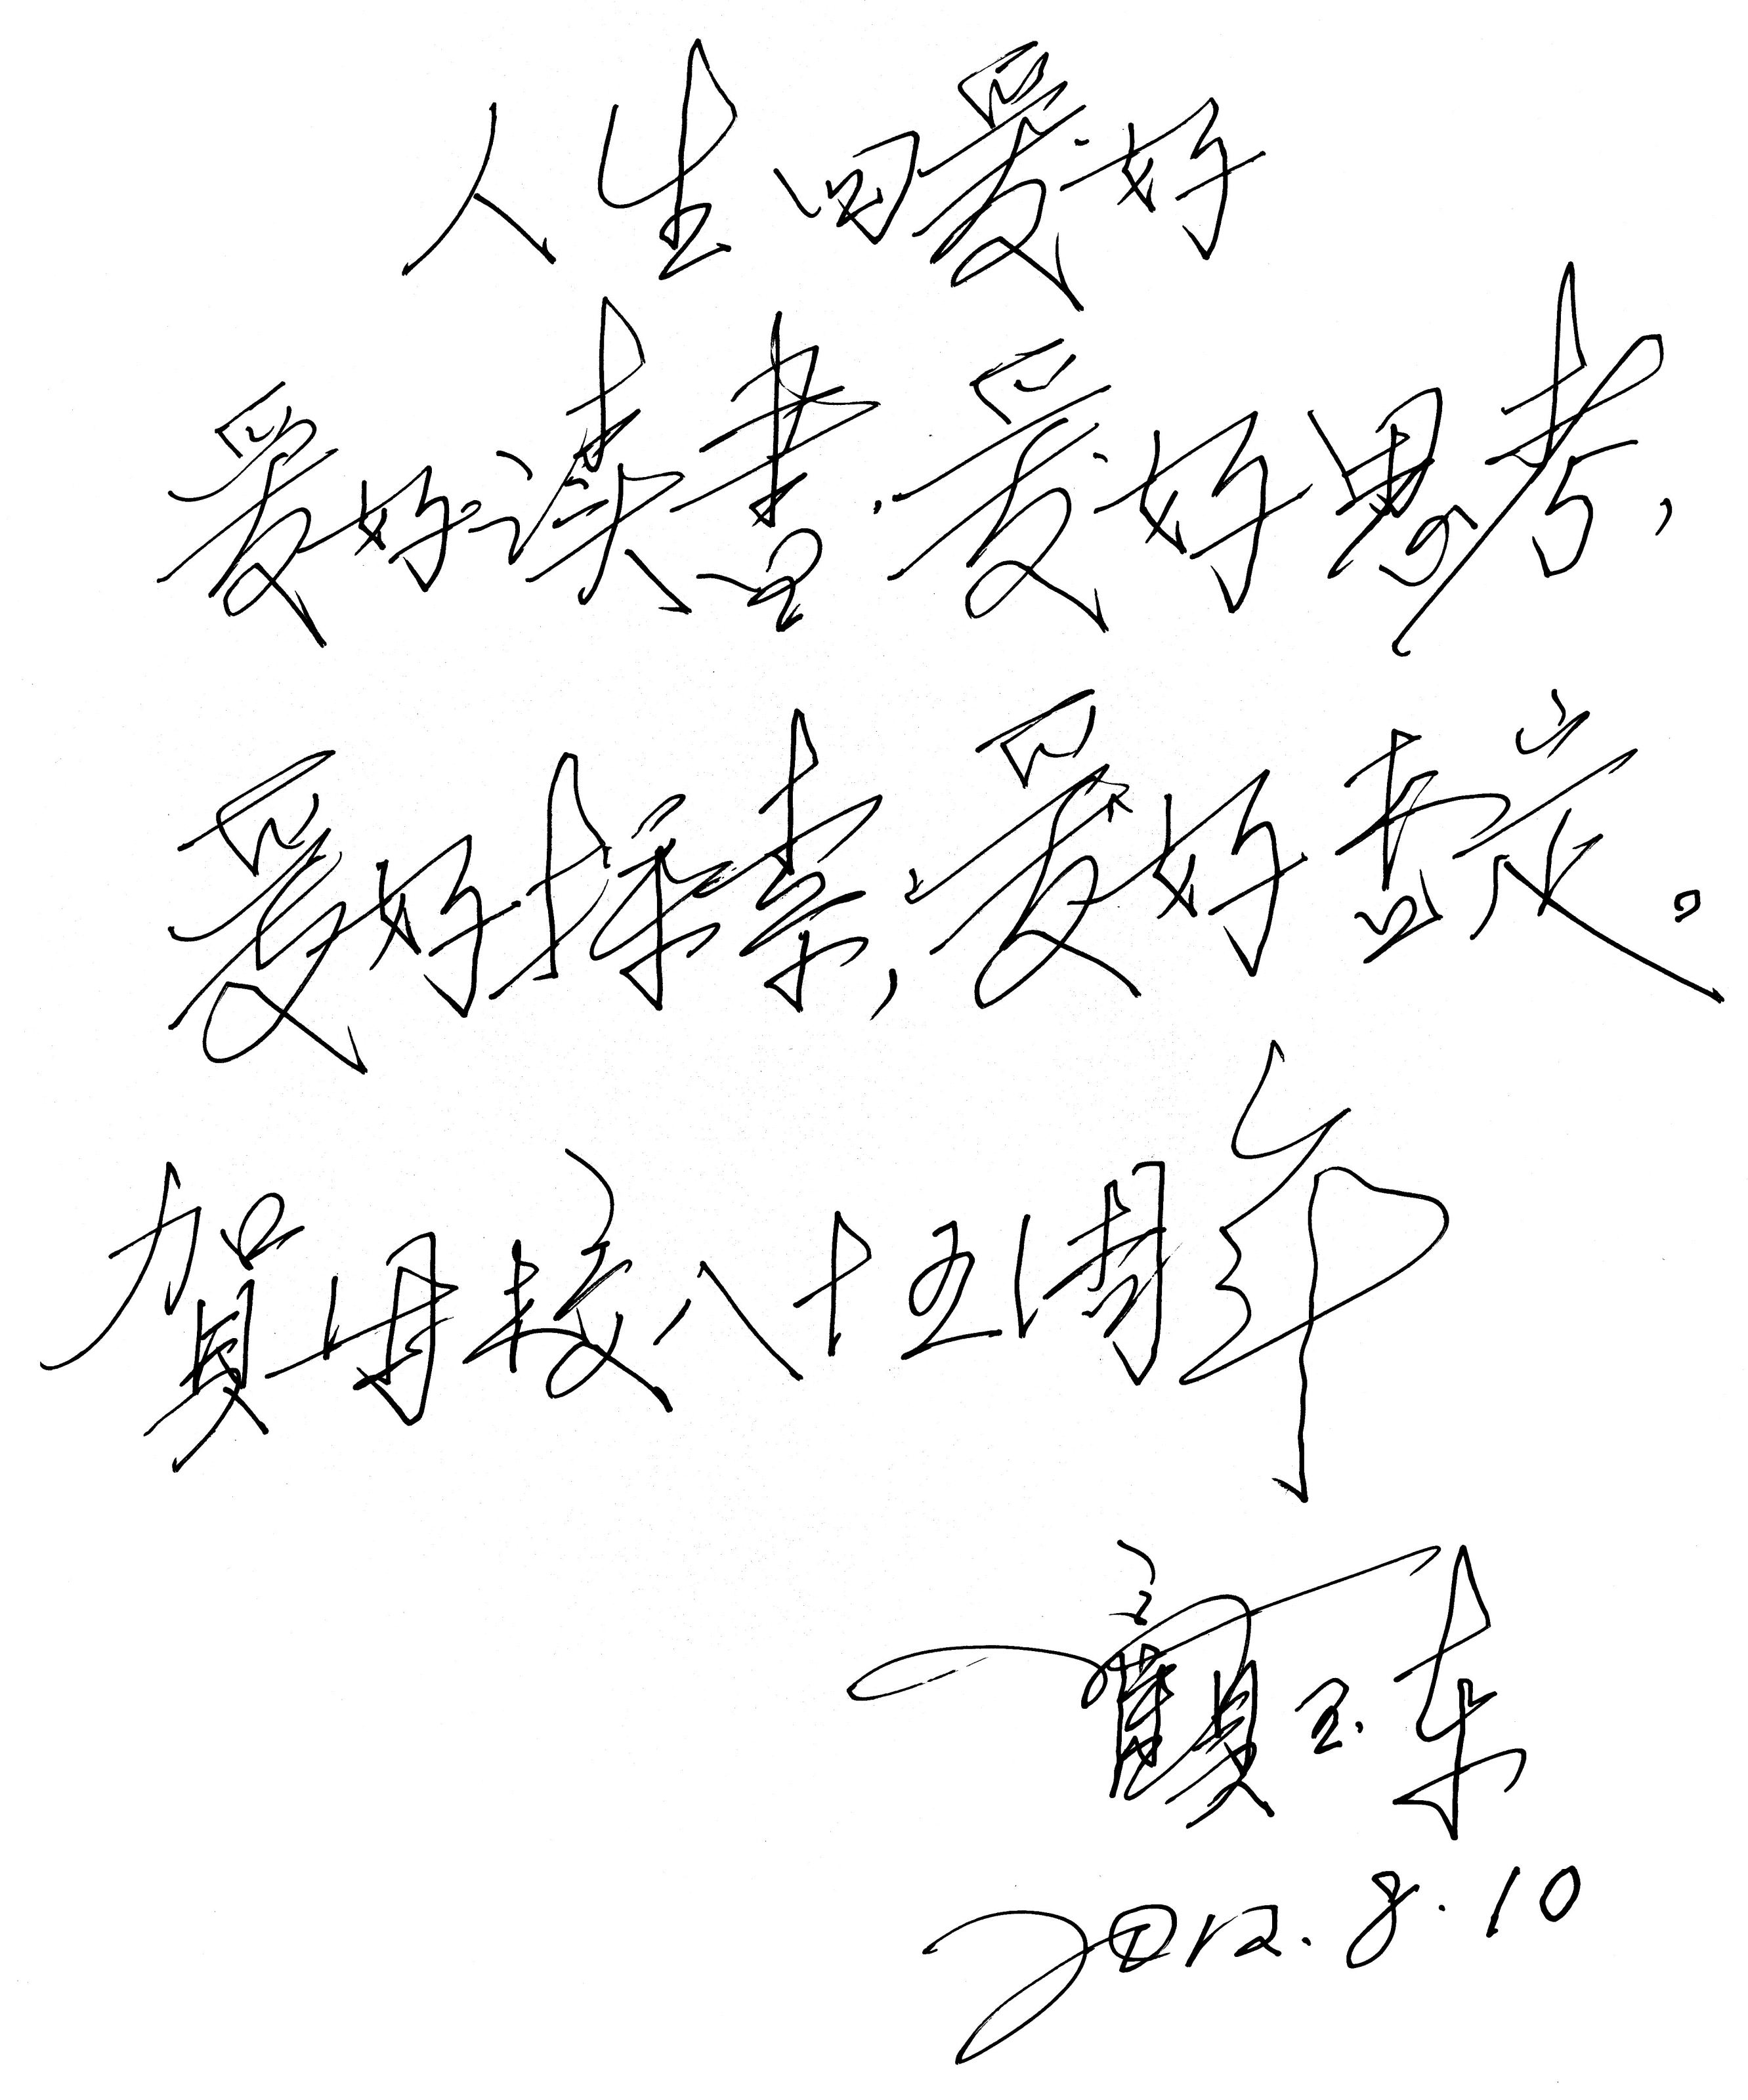 人生四爱好
爱好读書,爱好思考,
爱好探索,爱好 。
賀母校八十五周年
顧玉东
2012.8.10